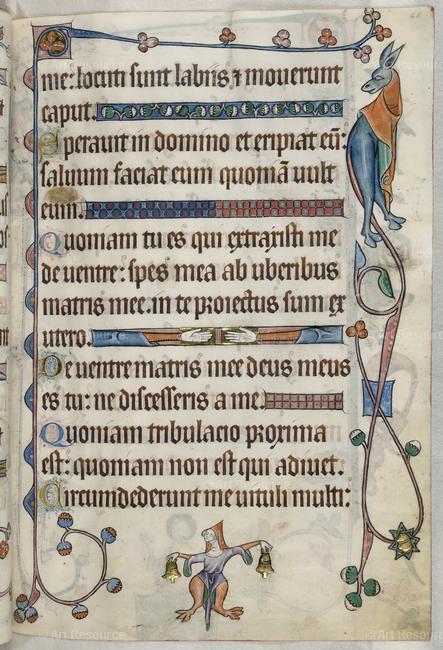 me: locuti sunt labiis ⁊ mouerunt
caput.
Sperauit in domino et eripiat eū:
saluum faciat eum quoniā uult
eum.
Quoniam tu es qui extraxisti me
de uentre: spes mea ab uberibus
matris mee. in te proiectus sum ex
utero.
De uentre matris mee deus meus
es tu: ne discesseris a me.
Quoniam tribulacio proxima
est: quoniam non est qui adiuet.
Circumdederunt me uituli multi:
© Art Resource
© Art Resource